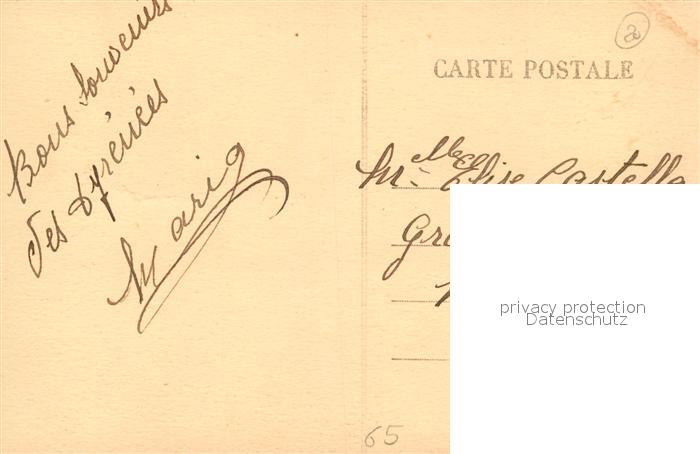 Bons Souvenirs
des Pyrénées
Marig
20
CARTE POSTALE
Mlle Elise Castella
privacy protection
Datenschutz
65